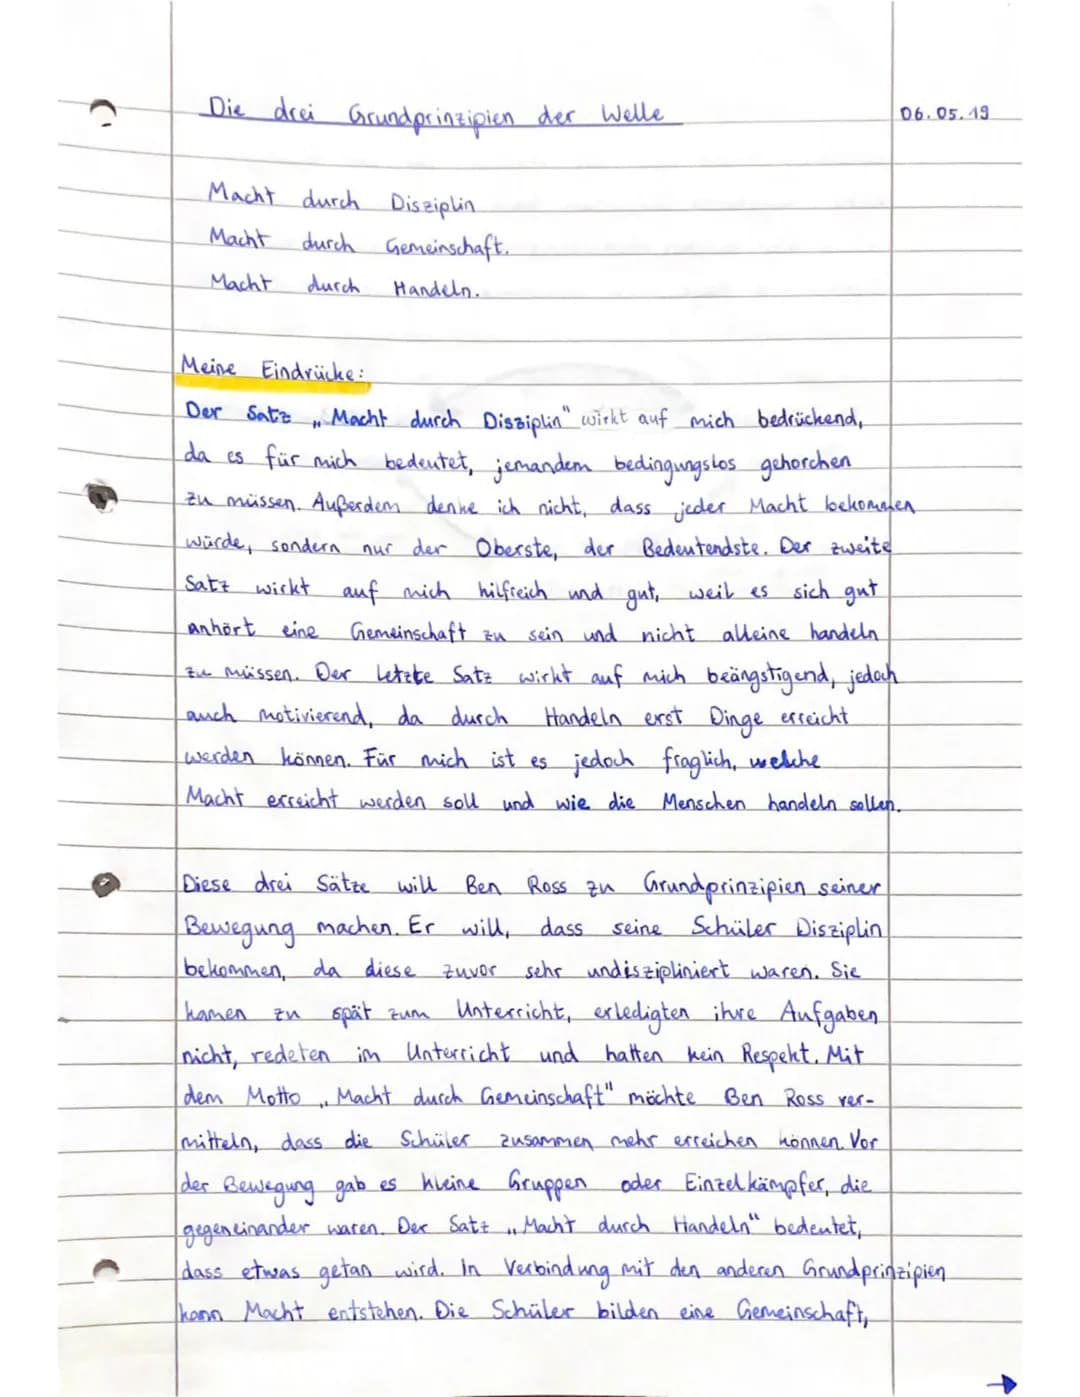 Die drei Grundprinzipien der Welle
06.05.19
Macht durch Disziplin
Macht durch Gemeinschaft.
Macht durch Handeln.
Meine Eindrücke:
Der Satz „Macht durch Disziplin" wirkt auf mich bedrückend,
da es für mich bedeutet, jemandem bedingungslos gehorchen
zu müssen. Außerdem denke ich nicht, dass jeder Macht bekommen
würde, sondern nur der Oberste, der Bedeutendste. Der zweite
Satz wirkt auf mich hilfreich und gut, weil es sich gut
anhört eine Gemeinschaft zu sein und nicht alleine handeln
zu müssen. Der letzte Satz wirkt auf mich beängstigend, jedoch
auch motivierend, da durch Handeln erst Dinge erreicht
werden können. Für mich ist es jedoch fraglich, welche
Macht erreicht werden soll und wie die Menschen handeln sollen.
Diese drei Sätze will Ben Ross zu Grundprinzipien seiner
Bewegung machen. Er will, dass seine Schüler Disziplin
bekommen, da diese zuvor sehr undiszipliniert waren. Sie
kamen zu spät zum Unterricht, erledigten ihre Aufgaben
nicht, redeten im Unterricht und hatten kein Respekt. Mit
dem Motto „Macht durch Gemeinschaft" möchte Ben Ross ver-
mitteln, dass die Schüler zusammen mehr erreichen können. Vor
der Bewegung gab es kleine Gruppen oder Einzelkämpfer, die
gegeneinander waren. Der Satz „Macht durch Handeln" bedeutet,
dass etwas getan wird. In Verbindung mit den anderen Grundprinzipien
kann Macht entstehen. Die Schüler bilden eine Gemeinschaft,
→